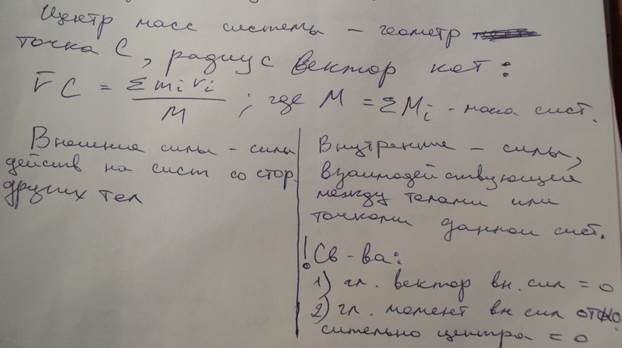 Центр масс системы – геометр
точка C, радиус вектор кот:
r̄ C = Σ mᵢ rᵢ / M ; где M = Σ Mᵢ - масса сист.
Внешние силы - силы
действ на сист со стор.
других тел
Внутренние - силы,
взаимодействующие
между телами или
точками данной сист.
! Св-ва:
1) гл. вектор вн. сил = 0
2) гл. момент вн сил отно
сительно центра = 0